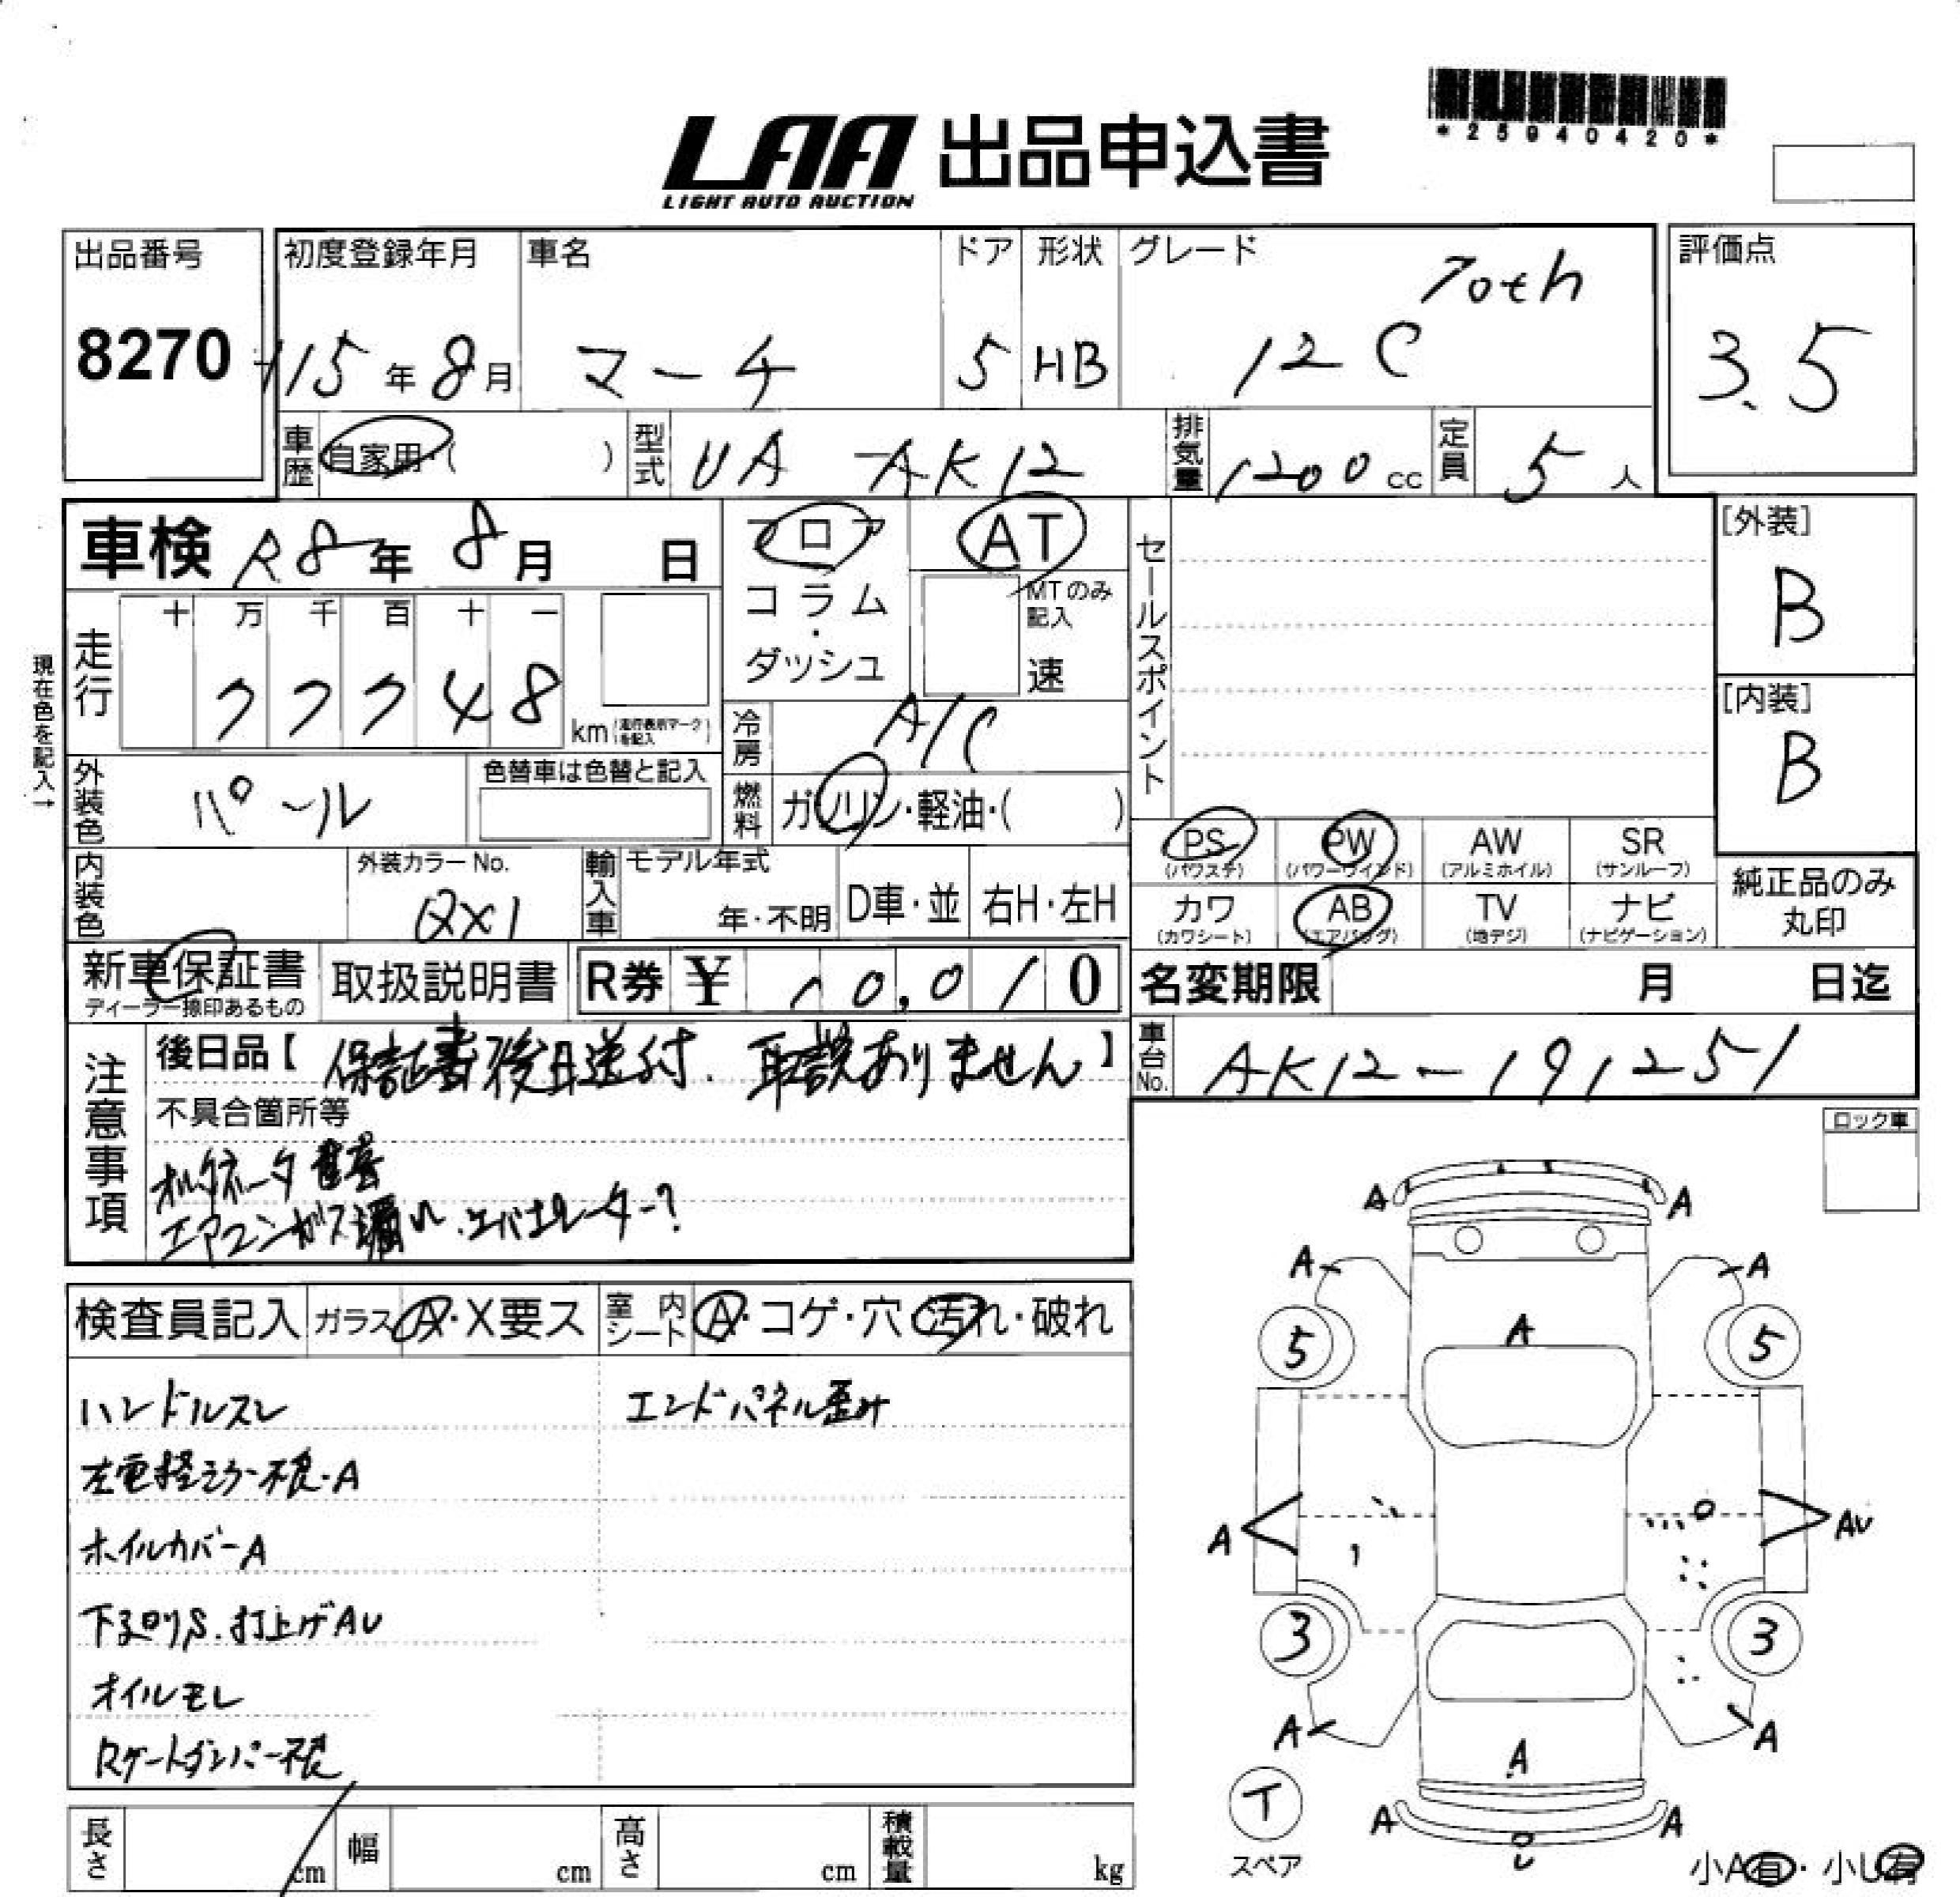 *25940420*
LAA 出品申込書
LIGHT AUTO AUCTION
出品番号 初度登録年月 車名 ドア 形状 グレード 評価点
70th
8270 H15年8月 マーチ 5 HB 12C 3.5
車歴 自家用・( ) 型式 UA-AK12 排気量 1200cc 定員 5人
車検 R8年8月 日 フロア AT セールスポイント [外装]
コラム・ダッシュ MTのみ記入 速 B
走行 十 万 千 百 十 一
77748 km (走行表示マークを記入) [内装]
現在色を記入→
冷房 A/C B
外装色 パール 色替車は色替と記入 燃料 ガソリン・軽油・( )
PS (パワステ) PW (パワーウィンド) AW (アルミホイル) SR (サンルーフ)
内装色 外装カラーNo. QX1 輸入車 モデル年式 年・不明 D車・並 右H・左H
カワ (カワシート) AB (エアバッグ) TV (地デジ) ナビ (ナビゲーション) 純正品のみ丸印
新車保証書 取扱説明書 R券 ¥ 10,010 名変期限 月 日迄
ディーラー捺印あるもの
注意事項 後日品【保証書後日送付、取説ありません】 車台No. AK12-191251
不具合箇所等 ロック車
オルタネータ
エアコンガス漏れ、エバポレーター?
検査員記入 ガラス A・X要ス 室内シート A・コゲ・穴・汚れ・破れ
ハンドルスレ エンドパネル歪み
左電格ミラー不良・A
ホイルカバーA
下廻りS.打上げAU
オイルモレ
Rゲートダンパー不良
長さ cm 幅 cm 高さ cm 積載量 kg
A A
A A
5 A 5
A AU
3 3
A A A
T
スペア
A A
U
小A有・小U有